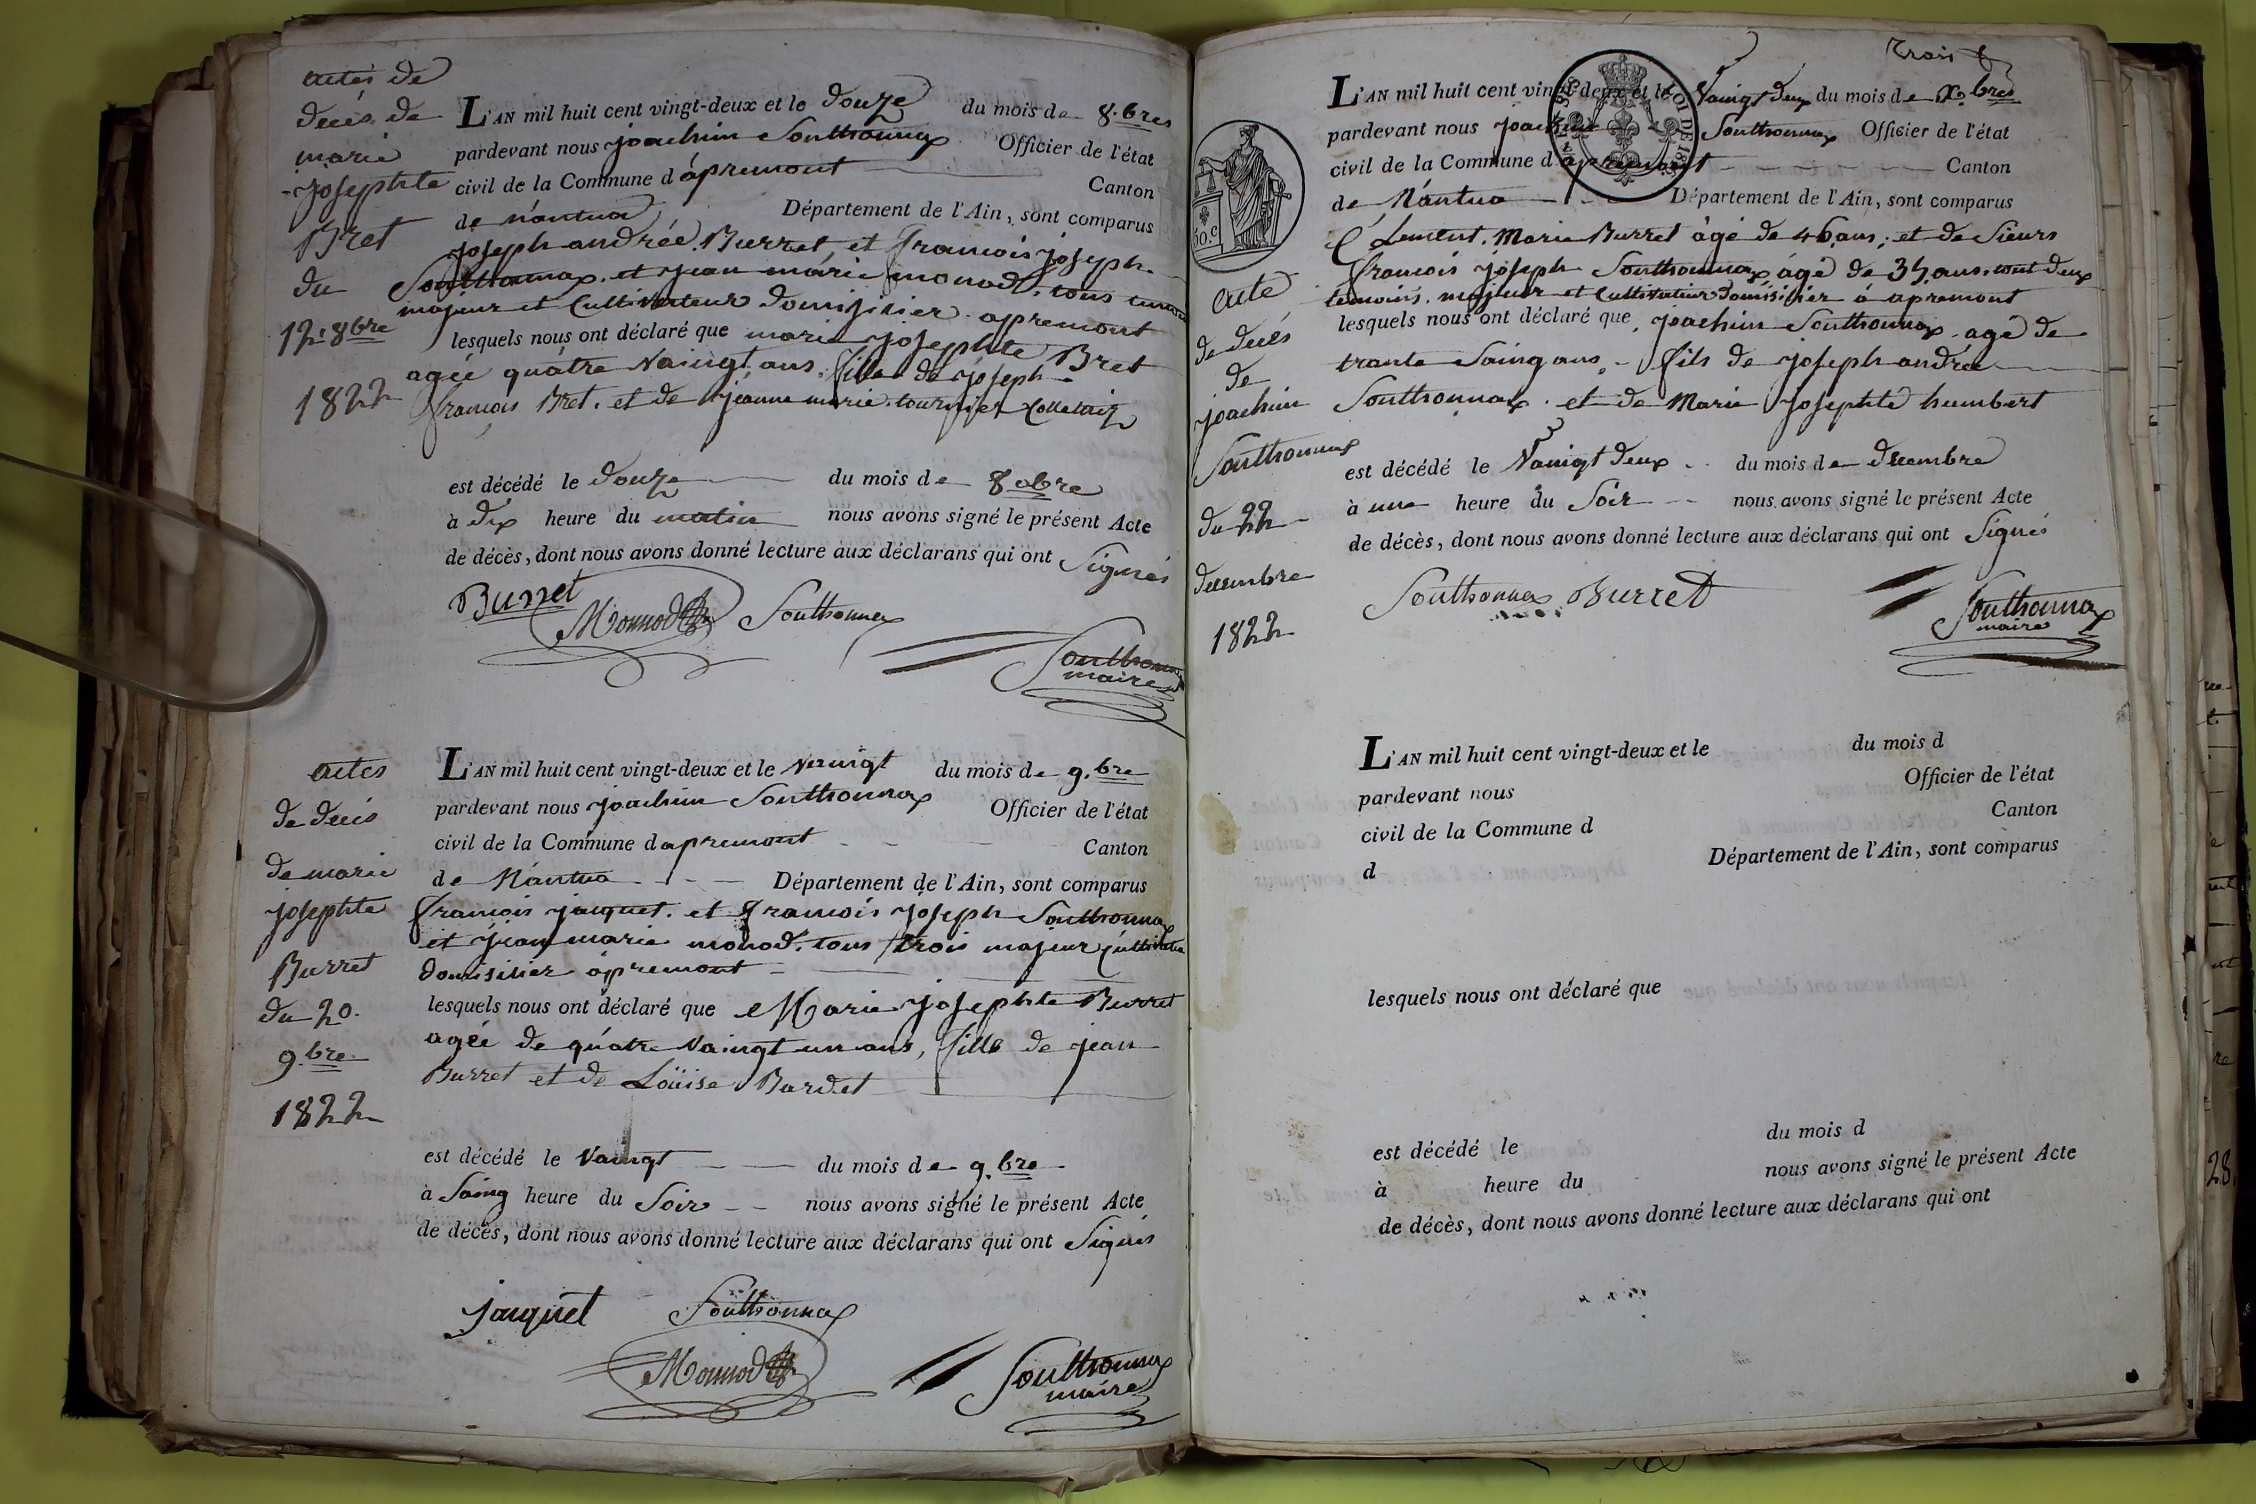 actes de
decés de
marie
josephte
Bret
du
12. 8bre
1822
L'AN mil huit cent vingt-deux et le douze du mois de 8.bres
pardevant nous joachim Southonnax Officier de l'état
civil de la Commune d'apremont Canton
de nantua Département de l'Ain, sont comparus
joseph andrée Burret, et francois joseph
Southonnax et jean marie monod. tous
majeur et Cultivateur domisilier apremont
lesquels nous ont déclaré que marie josephte Bret
agée quatre Vaingt ans fille de joseph
francois Bret. et de jeanne marie tournier
est décédé le douze du mois de 8obre
à dix heure du matin nous avons signé le présent Acte
de décès, dont nous avons donné lecture aux déclarans qui ont Signés
Burret
Monnod Southonnax
Southonnax
maire
actes
de decés
de marie
josephte
Burret
du 20.
9.bre
1822
L'AN mil huit cent vingt-deux et le Vaingt du mois de 9.bre
pardevant nous joachim Southonnax Officier de l'état
civil de la Commune d apremont Canton
de Nantua Département de l'Ain, sont comparus
francois jacquet. et francois joseph Southonnax
et jean marie monod. tous trois majeur Cultivateur
domisilier apremont
lesquels nous ont déclaré que Marie josephte Burret
agée de quatre Vaingt un ans, fille de jean
Burret et de Loüise Burdet
est décédé le Vaingt du mois de 9.bre
à Saing heure du Soir nous avons signé le présent Acte
de décès, dont nous avons donné lecture aux déclarans qui ont Signés
jacquet Southonnax
Monnod
Southonnax
maire
Trois
L'AN mil huit cent vingt-deux et le Vaingt deux du mois de X.bres
pardevant nous joachim Southonnax Officier de l'état
civil de la Commune d apremont Canton
de Nantua Département de l'Ain, sont comparus
Clement. Marie Burret âgé de 46 ans, et de Sieurs
francois joseph Southonnax âgé de 35 ans. tout deux
temoins. majeur et Cultivateur domisilier a apremont
lesquels nous ont déclaré que joachim Southonnax agé de
trante Saing ans, fils de joseph andrée
Southonnax. et de Marie josephte humbert
est décédé le Vaingt deux du mois de decembre
à une heure du Soir nous avons signé le présent Acte
de décès, dont nous avons donné lecture aux déclarans qui ont Signés
Southonnax Burret
Southonnax
maire
acte
de decés
de
joachim
Southonnax
du 22
decembre
1822
L'AN mil huit cent vingt-deux et le du mois d
pardevant nous Officier de l'état
civil de la Commune d Canton
d Département de l'Ain, sont comparus
lesquels nous ont déclaré que
est décédé le du mois d
à heure du nous avons signé le présent Acte
de décès, dont nous avons donné lecture aux déclarans qui ont
28